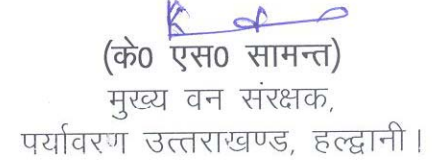 (के0 एस0 सामन्त)
मुख्य वन संरक्षक,
पर्यावरण उत्तराखण्ड, हल्द्वानी।